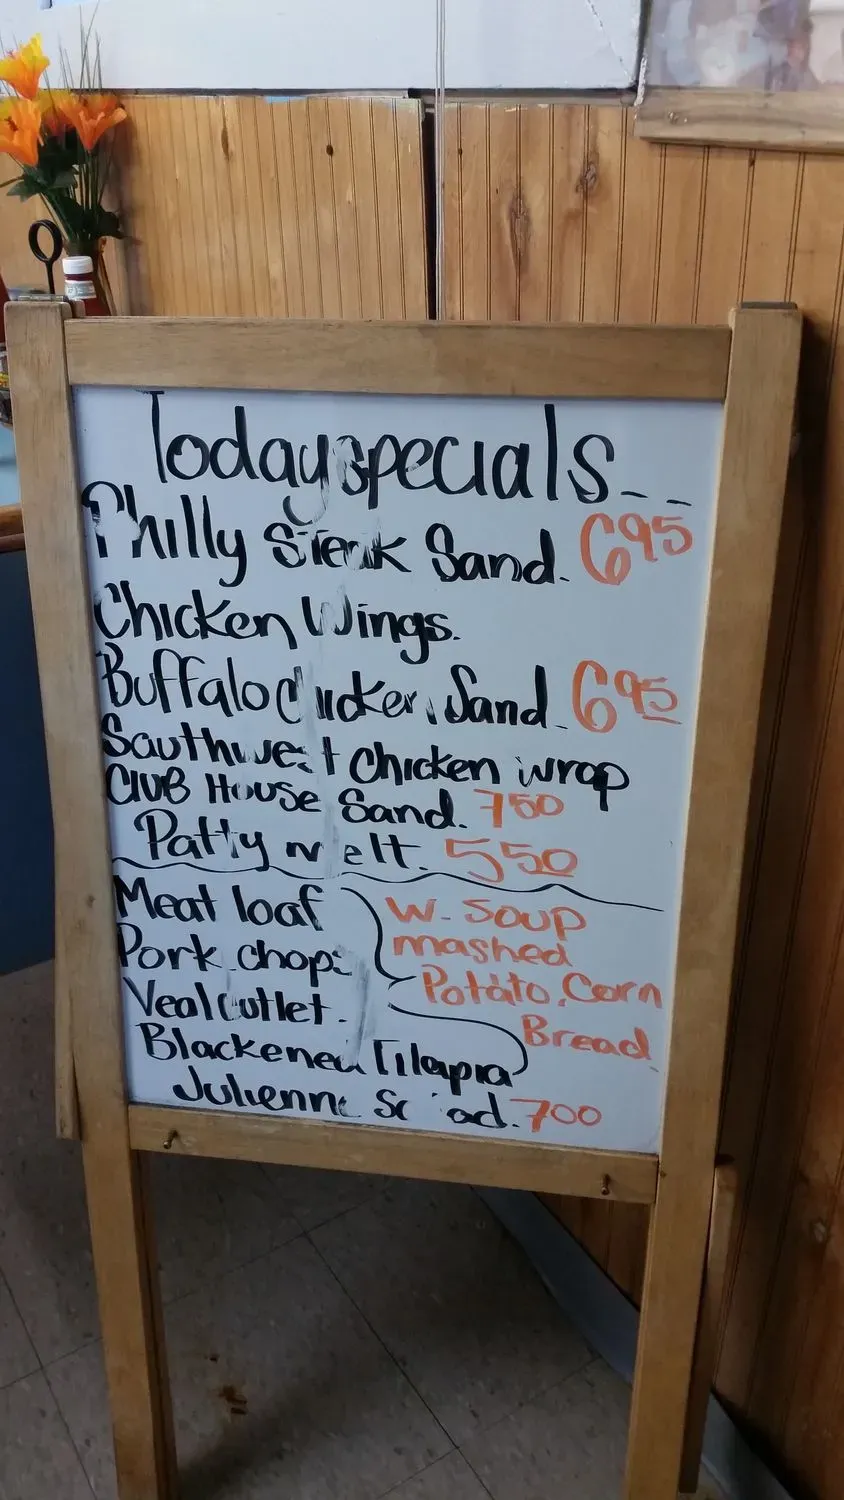 Today specials...
Philly Steak Sand. 6 95
Chicken Wings.
Buffalo Chicken Sand. 6 95
Southwest Chicken wrap
Club House Sand. 7 50
Patty melt. 5 50
Meat loaf W. Soup
Pork chops mashed
Veal Cutlet. Potato, Corn
Bread
Blackened Tilapia
Julienne Salad. 7 00